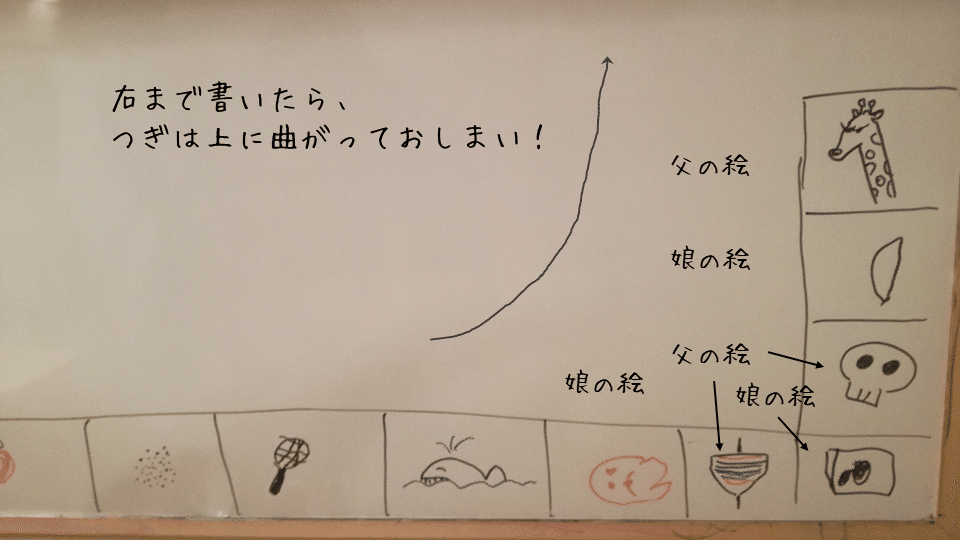 右まで書いたら、
つぎは上に曲がっておしまい！
父の絵
娘の絵
父の絵
娘の絵
娘の絵